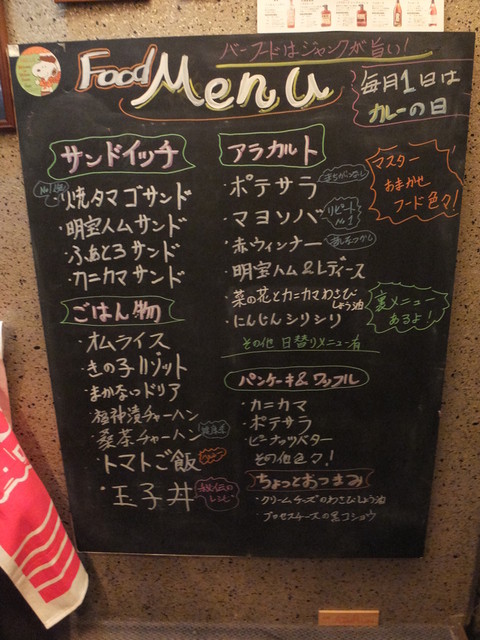 バーフードはジャンクが旨い!
Food Menu
毎月1日は
カレーの日
サンドイッチ
焼タマゴサンド
明宝ハムサンド
ふぁとろサンド
カニカマサンド
ごはん物
オムライス
きの子リゾット
まかないドリア
福神漬チャーハン
桑茶チャーハン
トマトご飯
玉子丼
秘伝の
レシピ
アラカルト
ポテサラ
まちがいなし
マヨソバ
リピート
No1
赤ウィンナー
昔なつかし
明宝ハム&レディース
菜の花とカニカマわさび
しょう油
にんじんシリシリ
その他 日替りメニュー有
マスター
おまかせ
フード色々!
裏メニュー
あるよ!
パンケーキ&ワッフル
カニカマ
ポテサラ
ピーナッツバター
その他色々!
ちょっとおつまみ
クリームチーズのわさびしょう油
プロセスチーズの黒コショウ